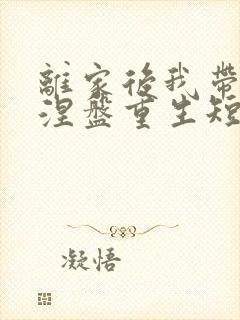 離家後我帶
涅盤重生短
凝悟